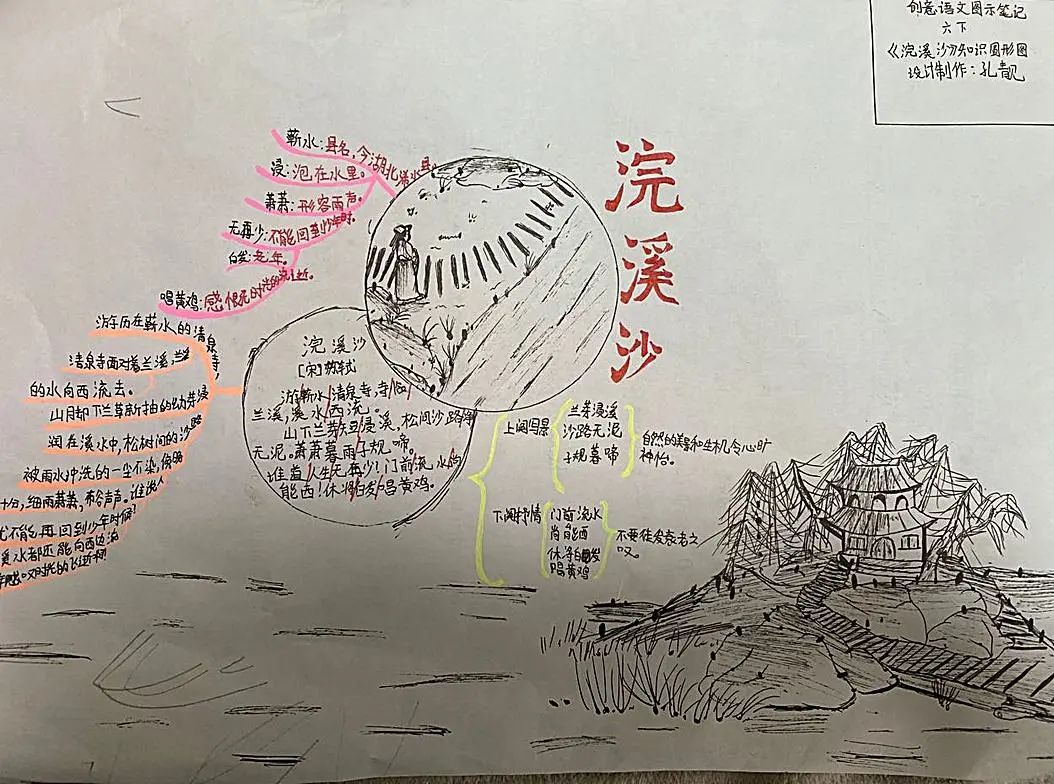 创意语文图示笔记
六下
《浣溪沙》知识圆形图
设计制作：孔靓
浣溪沙
蕲水：县名，今湖北浠水县。
浸：泡在水里。
萧萧：形容雨声。
无再少：不能回到少年时。
白发：老年。
唱黄鸡：感慨时光的流逝。
游历在蕲水的清泉寺，
清泉寺面对着兰溪，兰溪
的水向西流去。
山脚下兰草新抽的幼芽浸
润在溪水中，松树间的沙路
被雨水冲洗的一尘不染，傍晚
十分，细雨萧萧，布谷声声。谁说人
就不能再回到少年时候？
溪水都还能向西边流
叹时光的飞逝啊！
浣溪沙
[宋]苏轼
游蕲水清泉寺，寺临
兰溪，溪水西流。
山下兰芽短浸溪，松间沙路净
无泥。萧萧暮雨子规啼。
谁道人生无再少？门前流水尚
能西！休将白发唱黄鸡。
上阕写景
兰芽浸溪
沙路无泥
子规暮啼
自然的美景和生机令心旷
神怡。
下阕抒情
门前流水
尚能西
休将白发
唱黄鸡
不要徒发衰老之
叹。